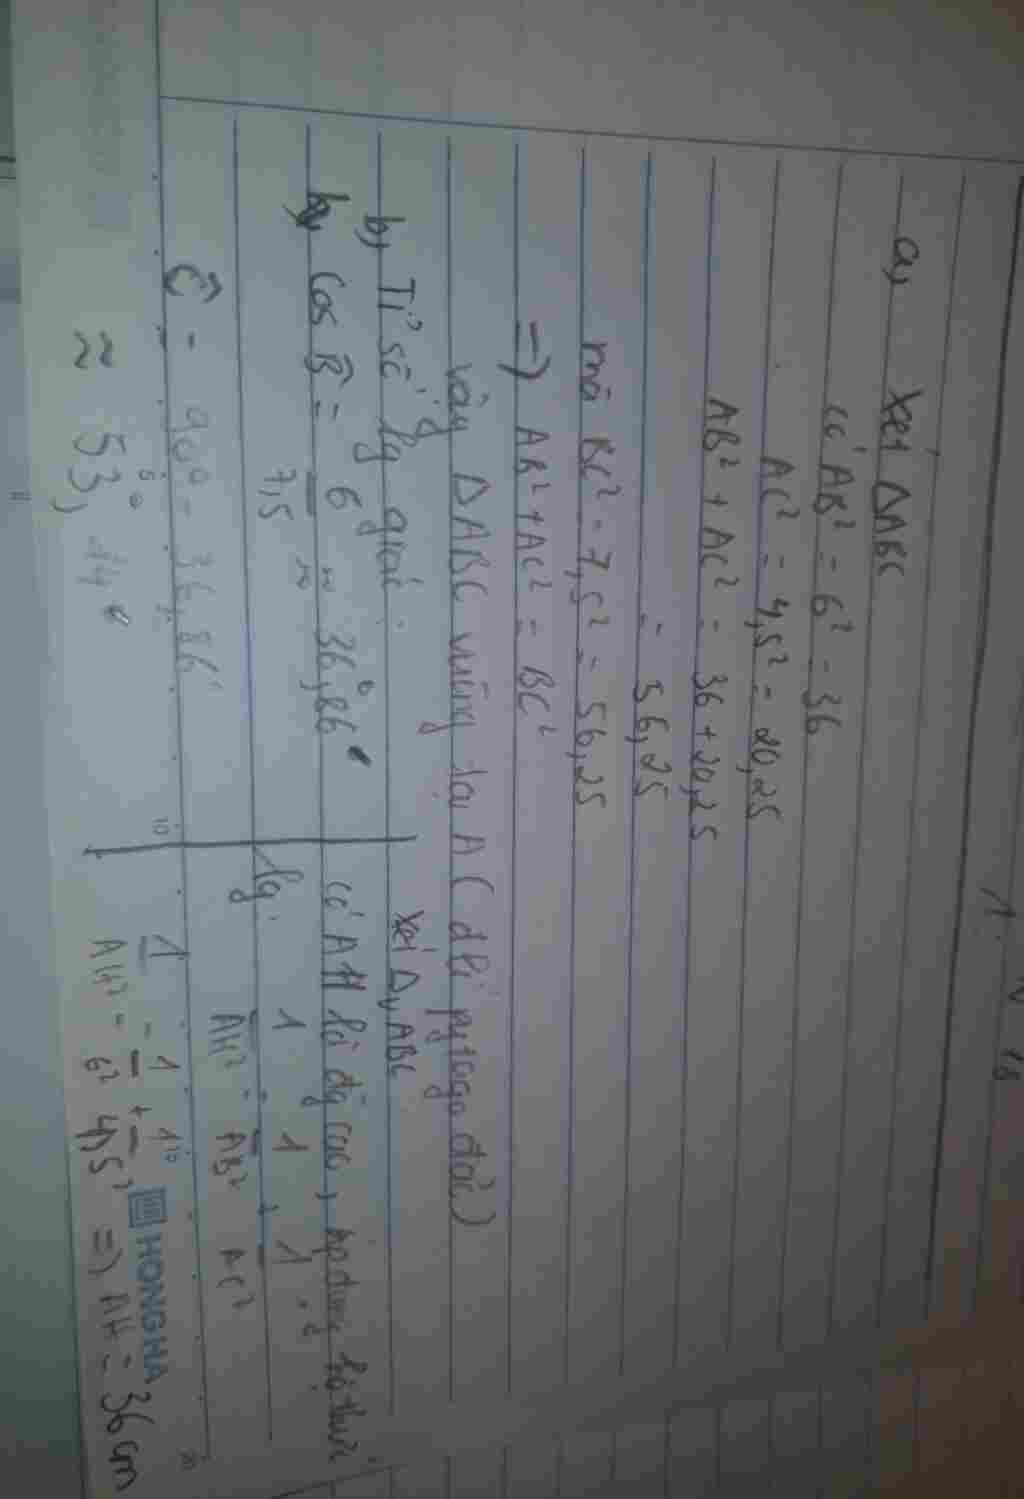 a, Xét ΔABC
có AB² = 6² = 36
AC² = 4,5² = 20,25
AB² + AC² = 36 + 20,25
= 56,25
mà BC² = 7,5² = 56,25
=> AB² + AC² = BC²
vậy ΔABC vuông tại A (đlí pytago đảo)
b, Tỉ số lg giác.
Cos B̂ = 6/7,5 ≈ 36,86°
Ĉ = 90° - 36,86°
≈ 53,14°
Xét Δv ABC
có AH là đg cao, áp dụng hệ thức
lg.
1/AH² = 1/AB² + 1/AC²
1/AH² = 1/6² + 1/4,5² => AH = 36 cm
HONG HA
10
20